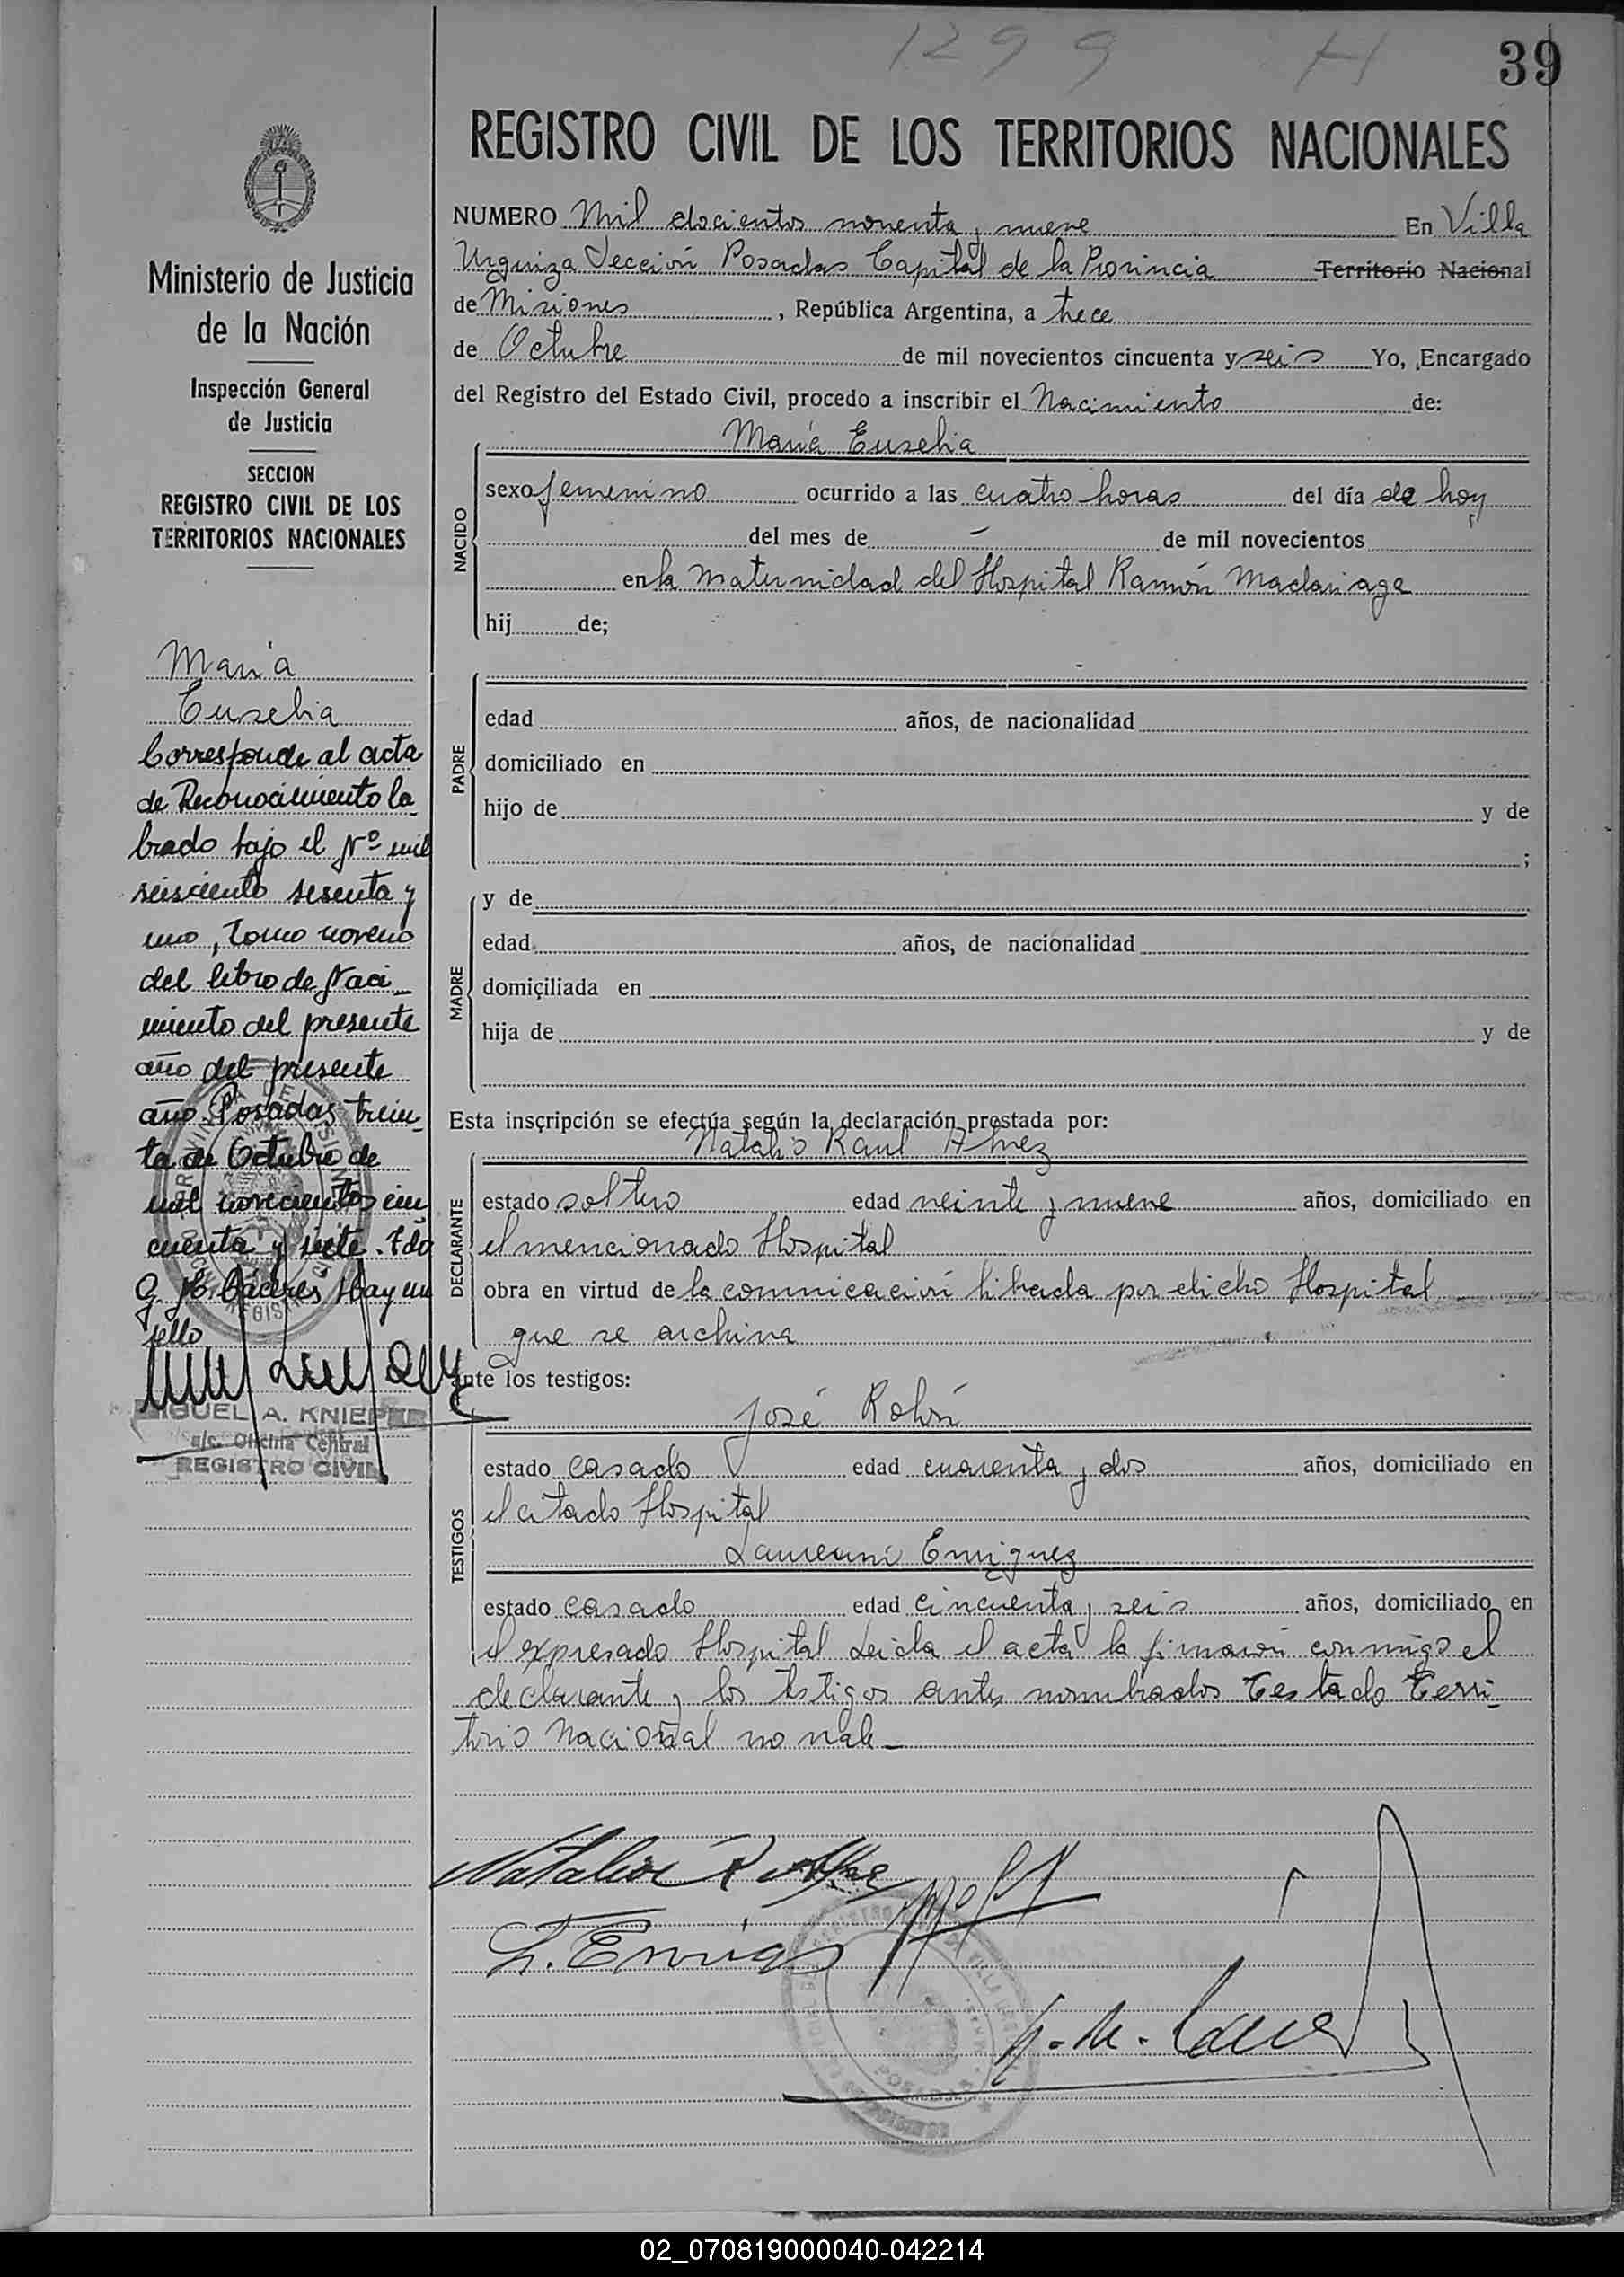 1299 H
39
REGISTRO CIVIL DE LOS TERRITORIOS NACIONALES
NUMERO Mil docientos noventa y nueve En Villa
Urquiza Sección Posadas Capital de la Provincia Territorio Nacional
de Misiones, República Argentina, a trece
de Octubre de mil novecientos cincuenta y seis Yo, Encargado
del Registro del Estado Civil, procedo a inscribir el Nacimiento de:
NACIDO
María Eusebia
sexo femenino ocurrido a las cuatro horas del día de hoy
del mes de - de mil novecientos
en la Maternidad del Hospital Ramón Madariaga
hij de;
PADRE
edad años, de nacionalidad
domiciliado en
hijo de y de
;
MADRE
y de
edad años, de nacionalidad
domiciliada en
hija de y de
Esta inscripción se efectúa según la declaración prestada por:
DECLARANTE
Natalio Raul
estado soltero edad veinte y nueve años, domiciliado en
el mencionado Hospital
obra en virtud de la comunicación librada por dicho Hospital
que se archiva
ante los testigos:
TESTIGOS
José Rolón
estado casado edad cuarenta y dos años, domiciliado en
el citado Hospital
Enriquez
estado casado edad cincuenta y seis años, domiciliado en
el expresado Hospital Leida el acta la firmaron conmigo el
declarante y los testigos antes nombrados Testado Terri-
torio Nacional no vale-
L. Enriq
Ministerio de Justicia
de la Nación
Inspección General
de Justicia
SECCION
REGISTRO CIVIL DE LOS
TERRITORIOS NACIONALES
María
Eusebia
Corresponde al acta
de Reconocimiento la
brado bajo el Nº mil
seisciento sesenta y
uno, Tomo noveno
del libro de Naci
miento del presente
año del presente
año Posadas trein
ta de Octubre de
mil novecientos cin
cuenta y siete. Fdo
G. H. Cáceres Hay un
sello
MIGUEL A. KNIEPER
a/c. Oficina Central
REGISTRO CIVIL
02_070819000040-042214